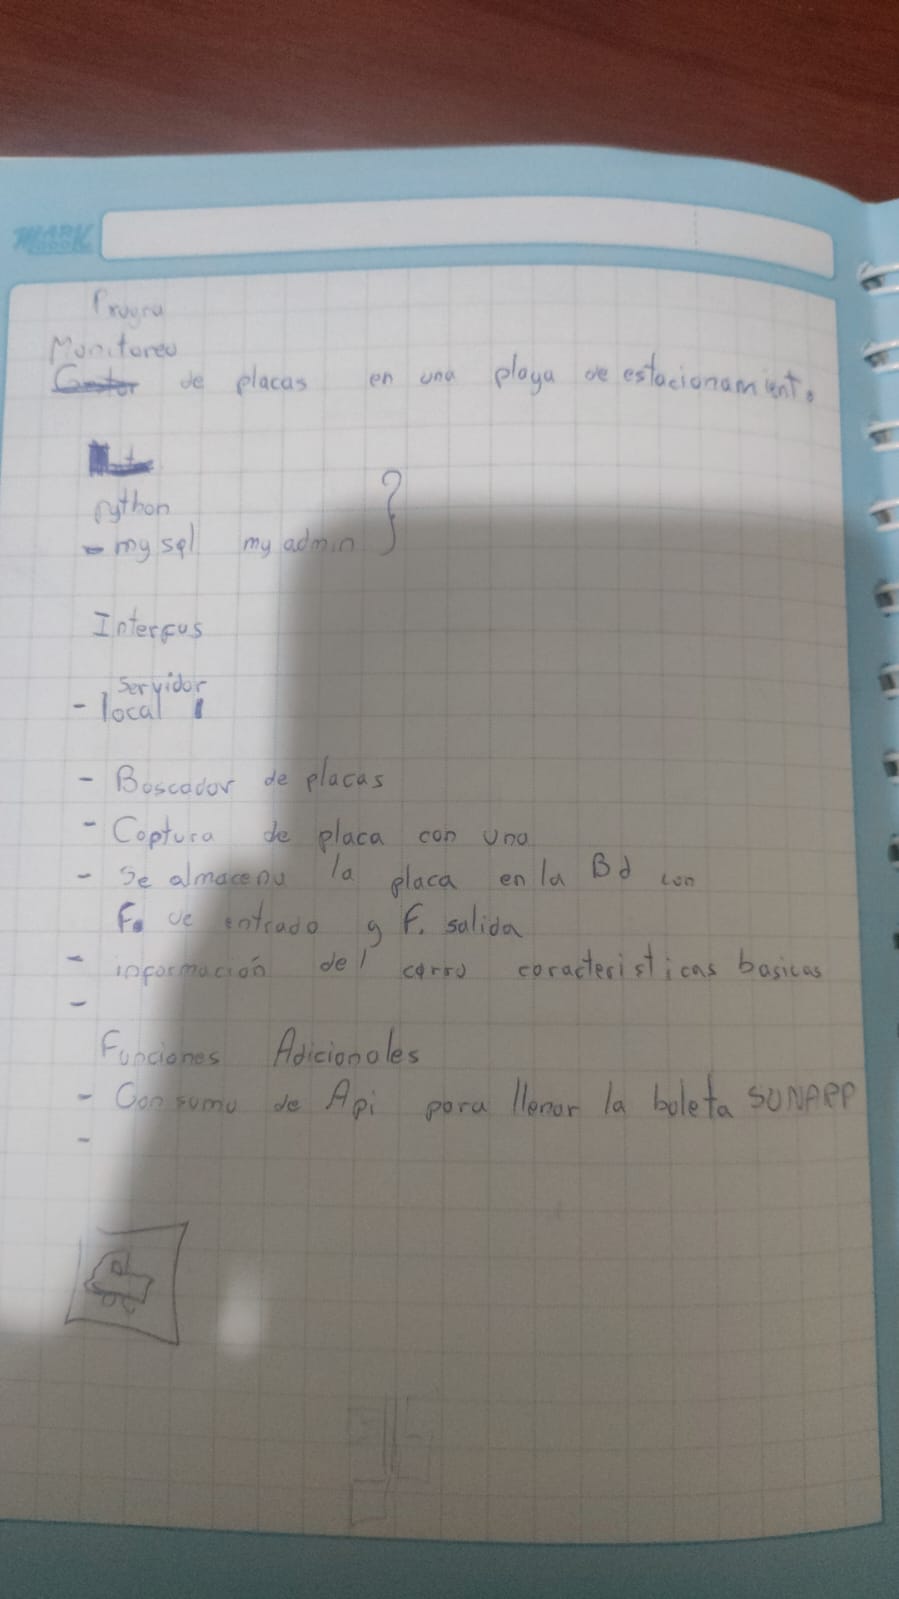 MARK
Progra
Monitoreo
de placas en una playa de estacionamiento
python
- my sql my admin }
Interfas
servidor
- local
- Boscador de placas
- Captura de placa con una
- Se almacena la placa en la Bd con
F. de entrada y F. salida
- información del carro caracteristicas basicas
-
Funciones Adicionales
- Consumo de Api para llenar la boleta SUNARP
-